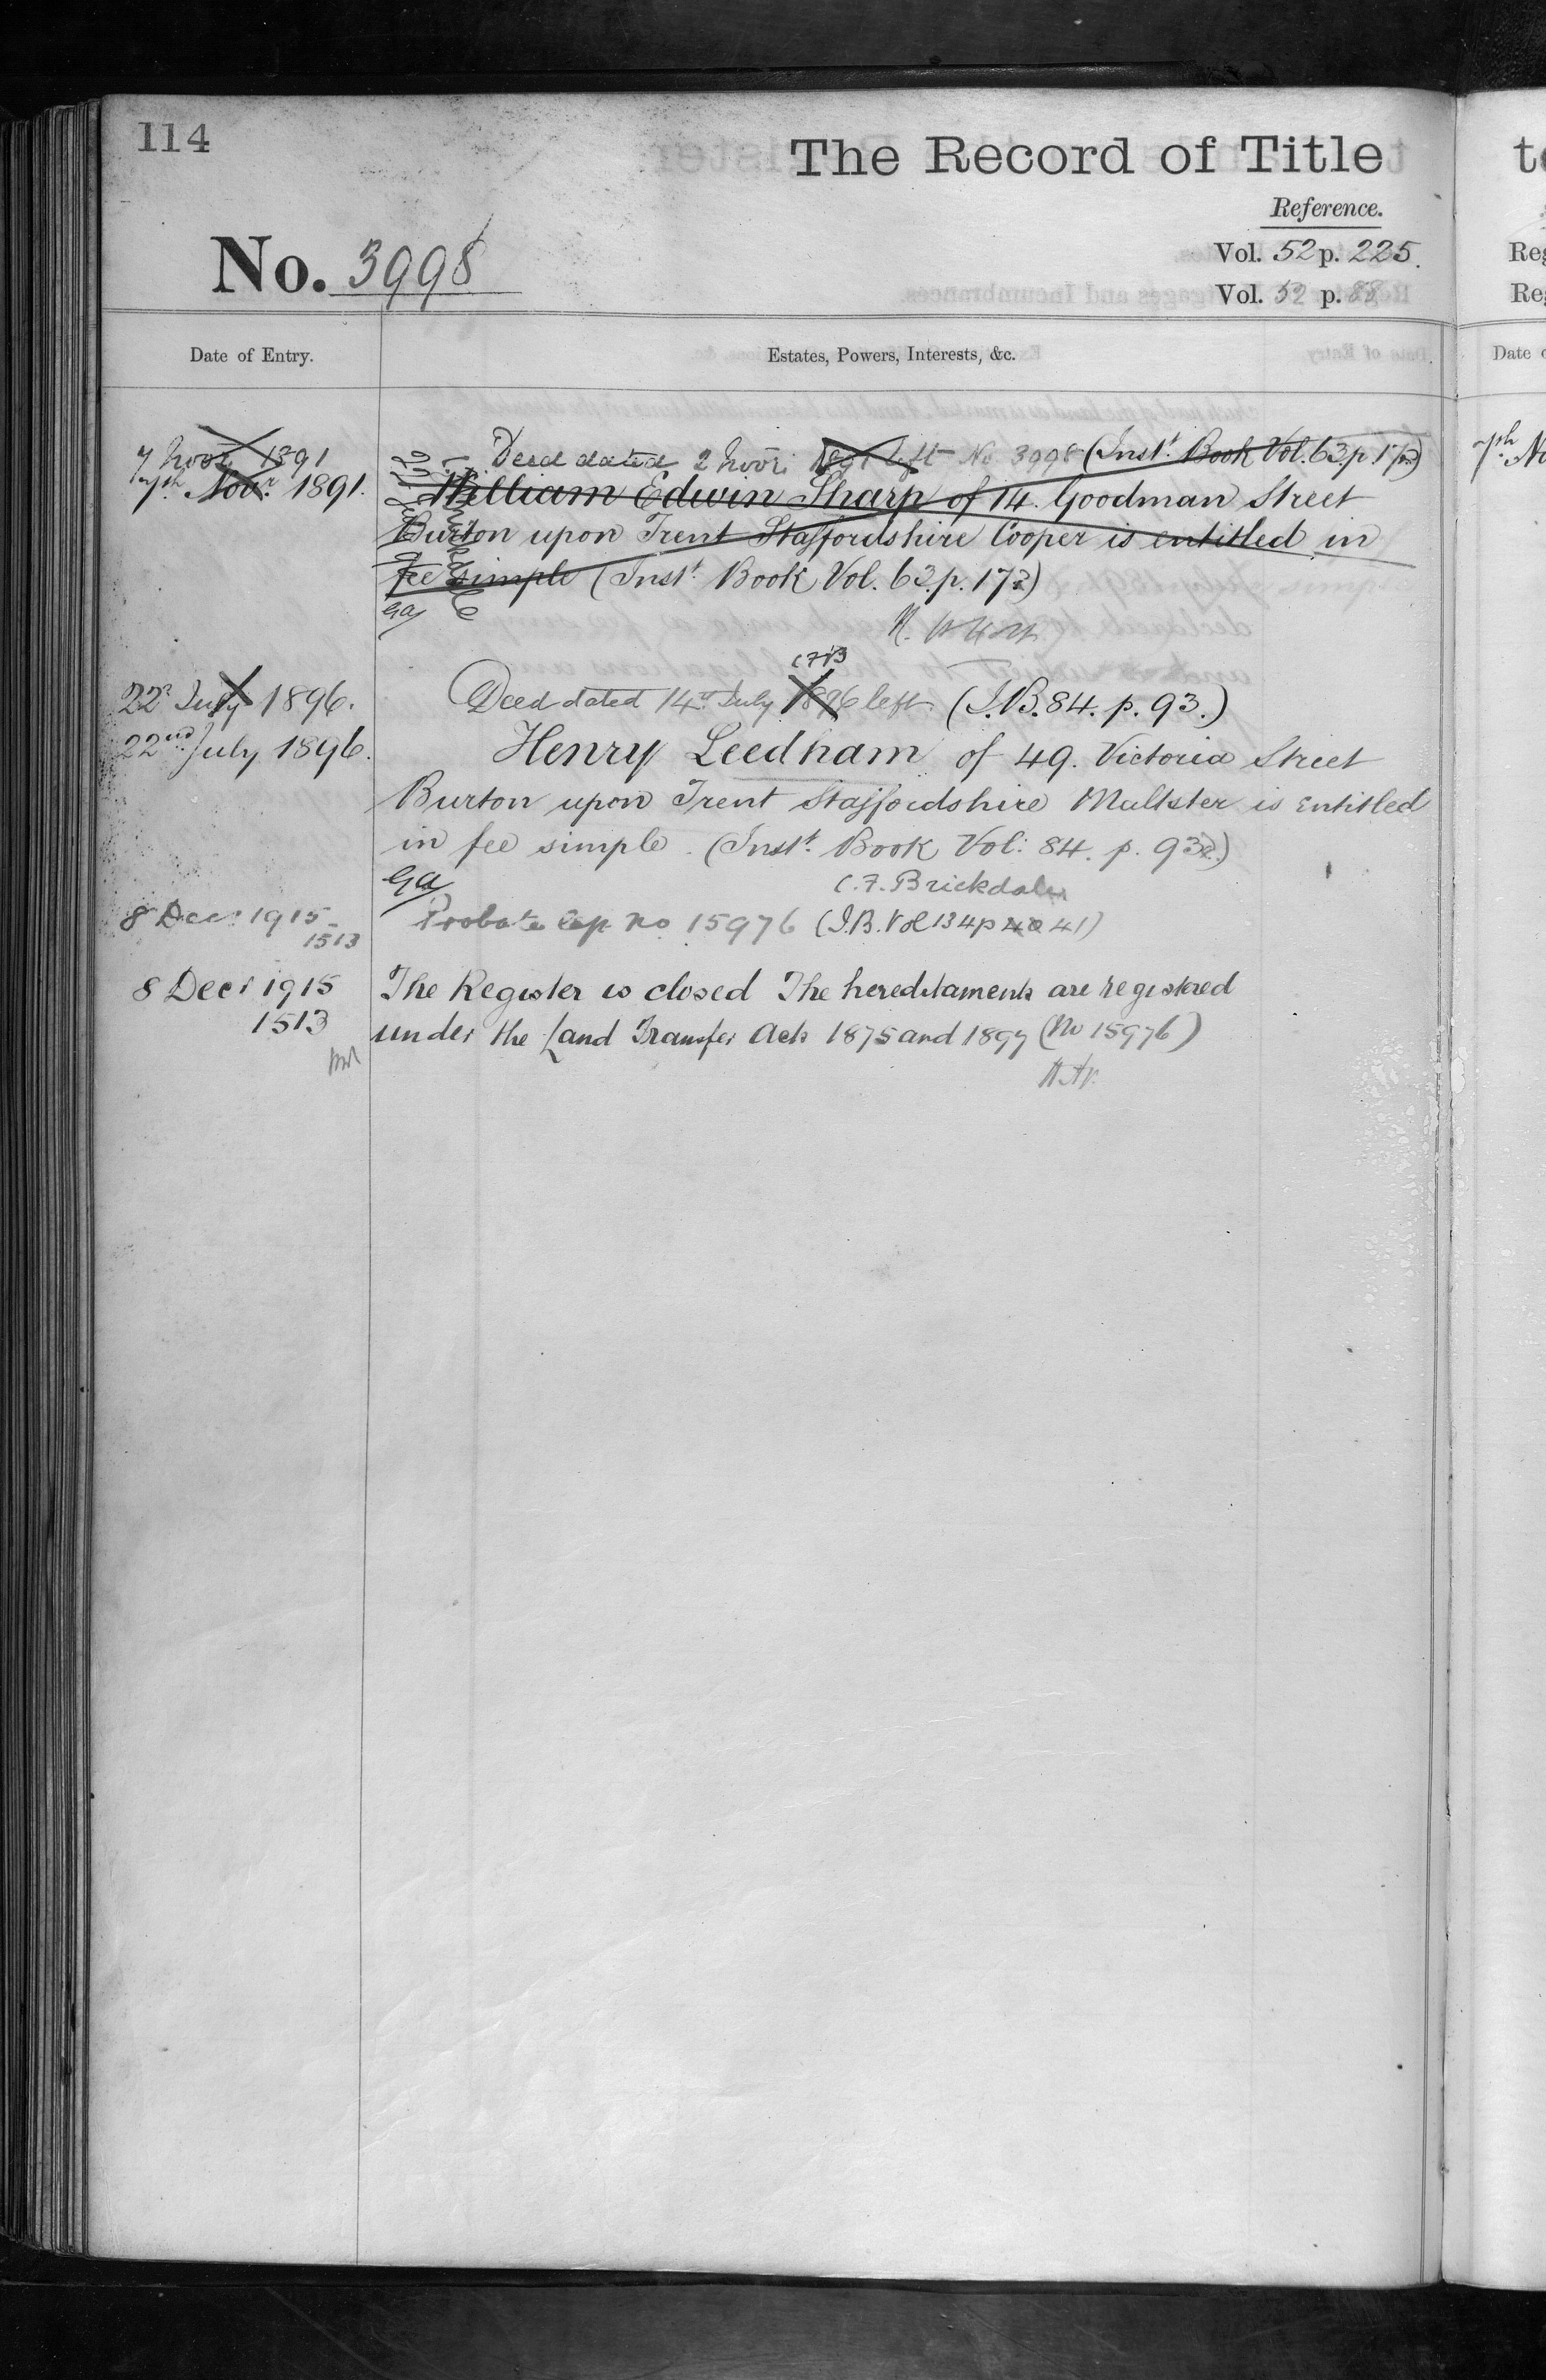 114
The Record of Title
Reference.
No. 3998
Vol. 52 p. 225.
Vol. 52 p. 88
Date of Entry.
Estates, Powers, Interests, &c.
7 Novr 1891 Deed dated 2 Novr: 1891 left No 3998 (Inst.t Book Vol. 63. p. 173)
7th Novr. 1891. William Edwin Sharp of 14. Goodman Street
Burton upon Trent Staffordshire Cooper is entitled in
fee simple (Inst.t Book Vol. 63. p. 173)
GA
CFB
22d July 1896. Deed dated 14th July 1896 left. (I.B. 84. p. 93.)
22nd July 1896. Henry Leedham of 49. Victoria Street
Burton upon Trent Staffordshire Maltster is entitled
in fee simple. (Inst.t Book Vol: 84. p. 93.)
GA C.F. Brickdale
8 Decr 1915 Probate no 15976 (I.B. Vol 134 p 40 41)
1513
8 Decr 1915 The Register is closed The hereditaments are registered
1513 under the Land Transfer Acts 1875 and 1897 (No 15976)
Reg
Reg
Date o
7th No